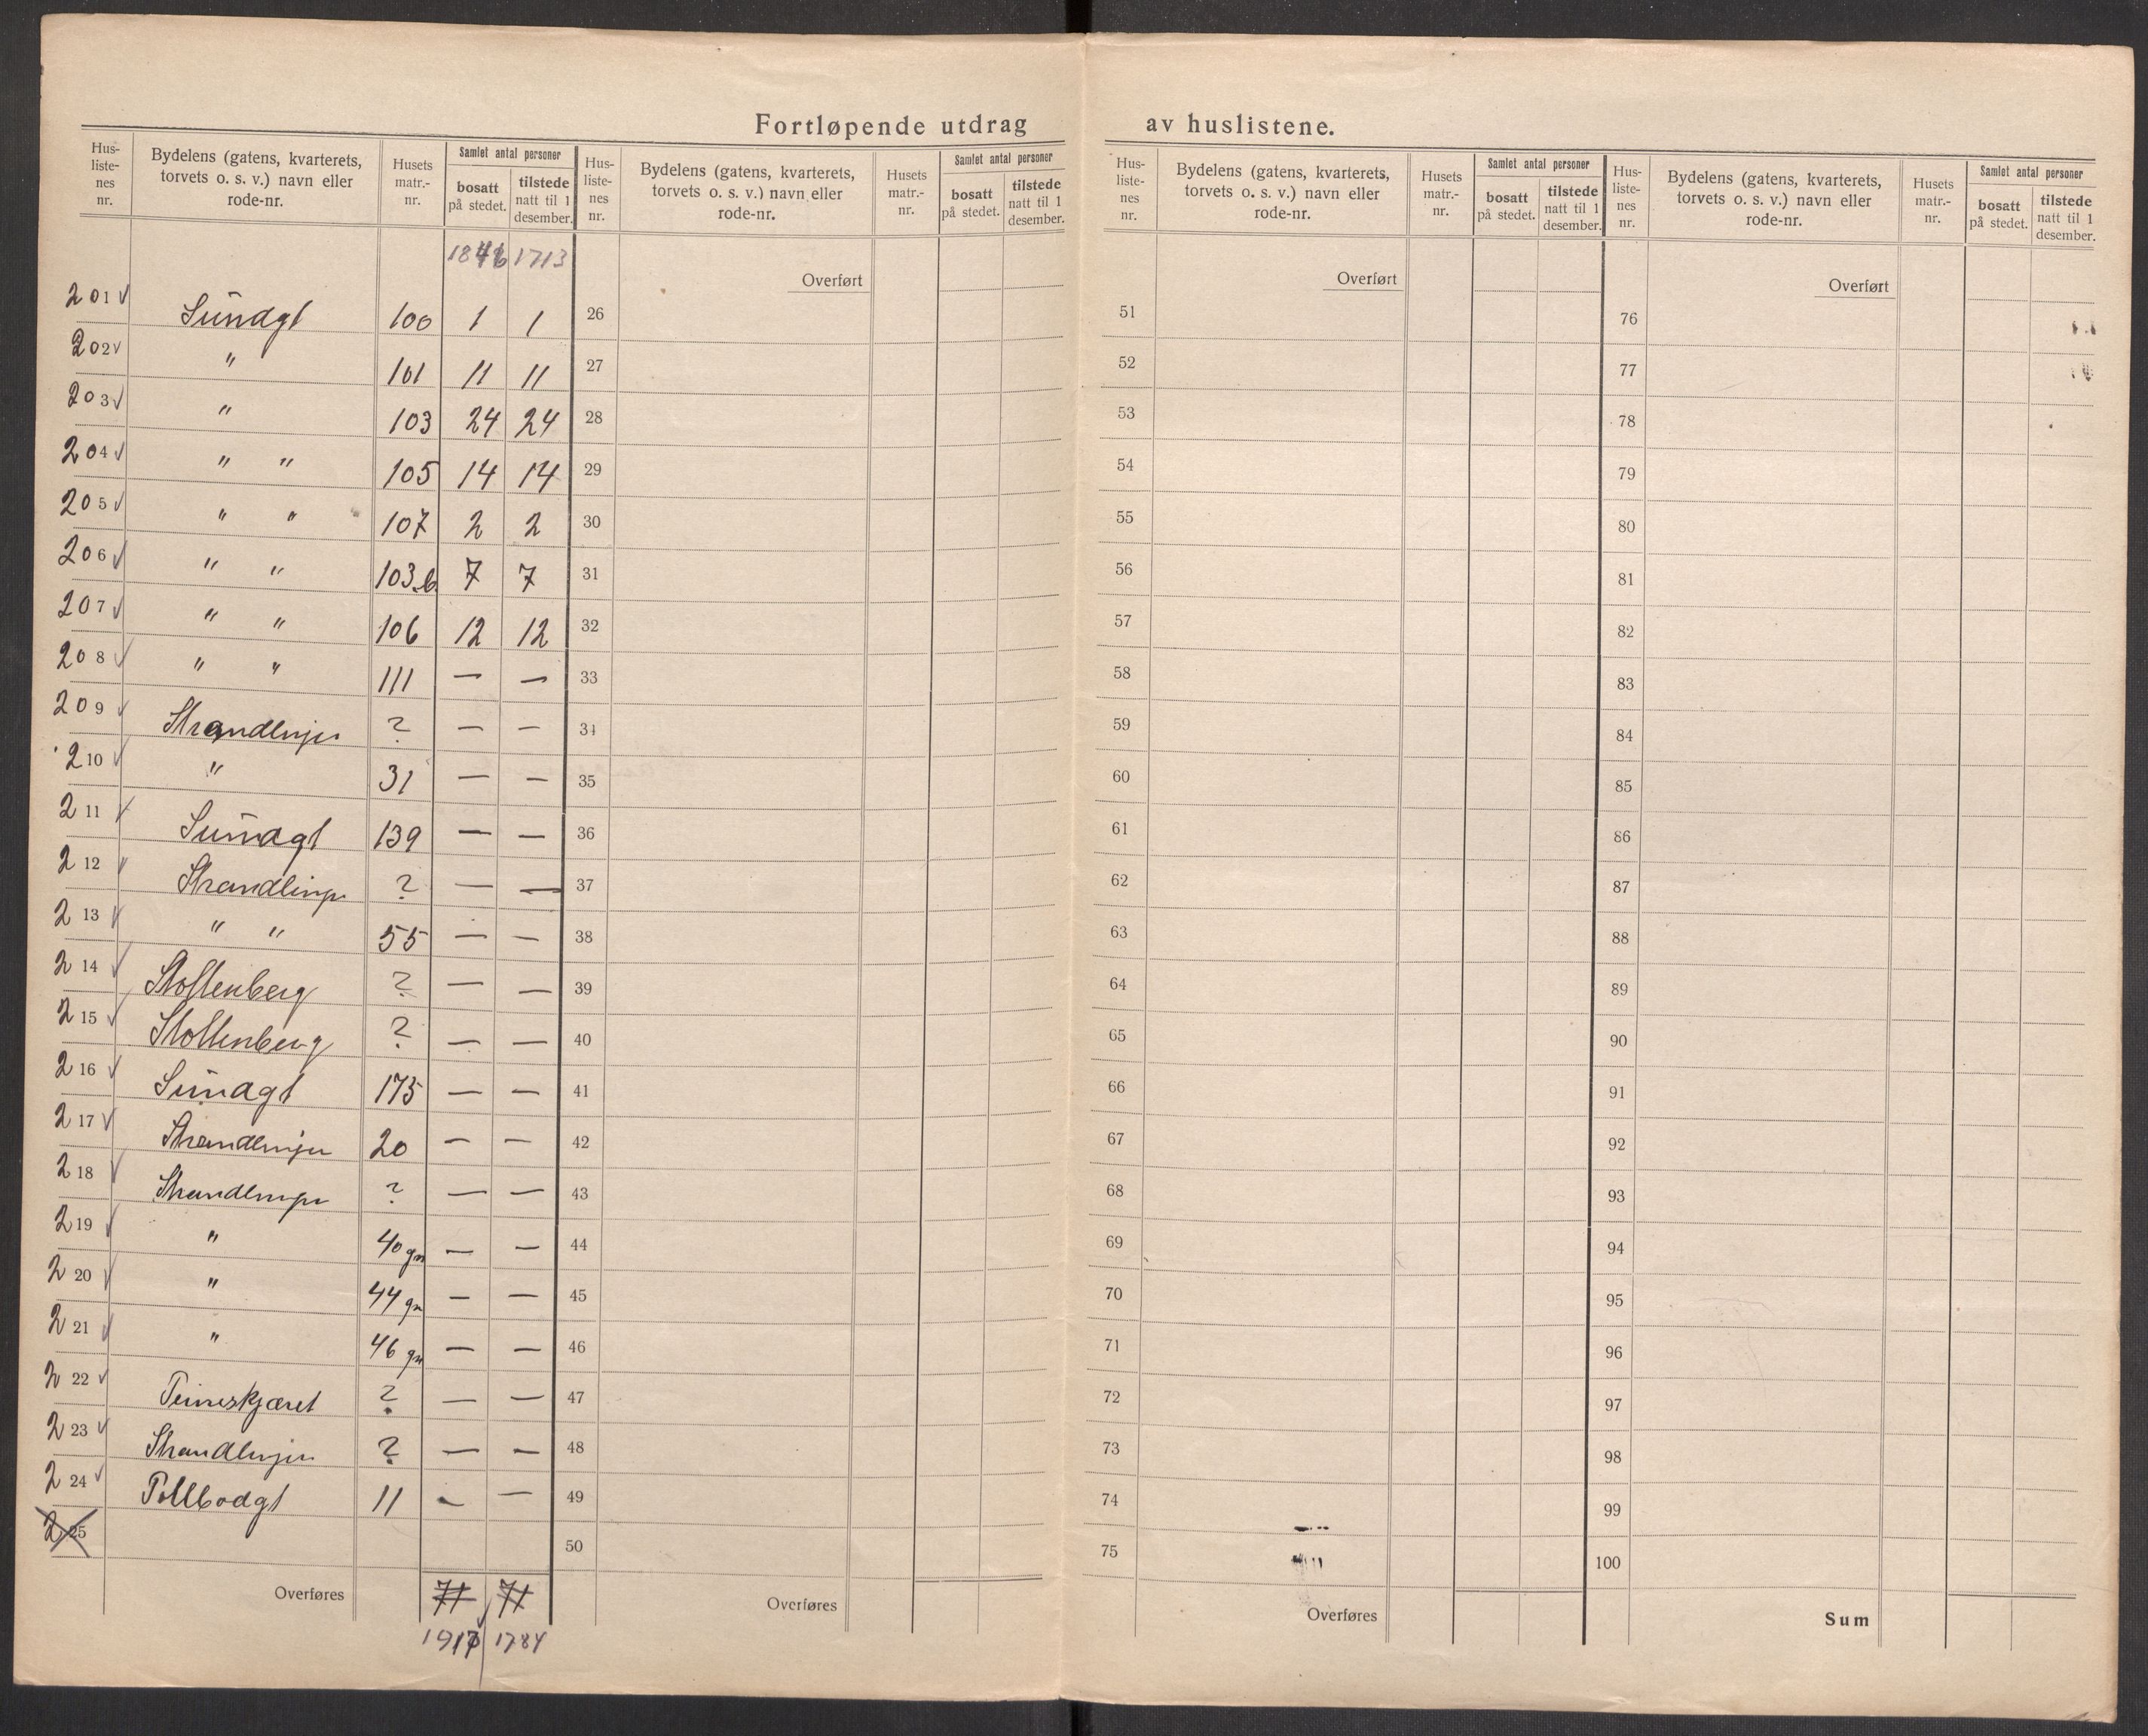 Fortløpende utdrag av huslistene.
Hus-
liste-
nes
nr.
Bydelens (gatens, kvarterets,
torvets o. s. v.) navn eller
rode-nr.
Husets
matr.-
nr.
Samlet antal personer
bosatt
på stedet.
tilstede
natt til 1
desember.
1846 1713
201 √ Sundgt 100 1 1
202 √ " 101 11 11
203 √ " 103 24 24
204 √ " " 105 14 14
205 √ " " 107 2 2
206 √ " " 103b 7 7
207 √ " " 106 12 12
208 √ " " 111 — —
209 √ Strandlinjen ? — —
210 √ " 31 — —
211 √ Sundgt 139 — —
212 √ Strandlinjen ? — —
213 √ " " 55 — —
214 √ Stoltenberg ? — —
215 √ Stoltenberg ? — —
216 √ Sundgt 175 — —
217 √ Strandlinjen 20 — —
218 √ Strandlinjen ? — —
219 √ " 40 gn — —
220 √ " 44 gn — —
221 √ " 46 gn — —
222 √ Teineskjæret ? — —
223 √ Strandlinjen ? — —
224 √ Tollbodgt 11 — —
225
Overføres 71 71
1917 1784
Hus-
liste-
nes
nr.
Bydelens (gatens, kvarterets,
torvets o. s. v.) navn eller
rode-nr.
Husets
matr.-
nr.
Samlet antal personer
bosatt
på stedet.
tilstede
natt til 1
desember.
Overført
26
27
28
29
30
31
32
33
34
35
36
37
38
39
40
41
42
43
44
45
46
47
48
49
50
Overføres
Hus-
liste-
nes
nr.
Bydelens (gatens, kvarterets,
torvets o. s. v.) navn eller
rode-nr.
Husets
matr.-
nr.
Samlet antal personer
bosatt
på stedet.
tilstede
natt til 1
desember.
Overført
51
52
53
54
55
56
57
58
59
60
61
62
63
64
65
66
67
68
69
70
71
72
73
74
75
Overføres
Hus-
liste-
nes
nr.
Bydelens (gatens, kvarterets,
torvets o. s. v.) navn eller
rode-nr.
Husets
matr.-
nr.
Samlet antal personer
bosatt
på stedet.
tilstede
natt til 1
desember.
Overført
76
77
78
79
80
81
82
83
84
85
86
87
88
89
90
91
92
93
94
95
96
97
98
99
100
Sum